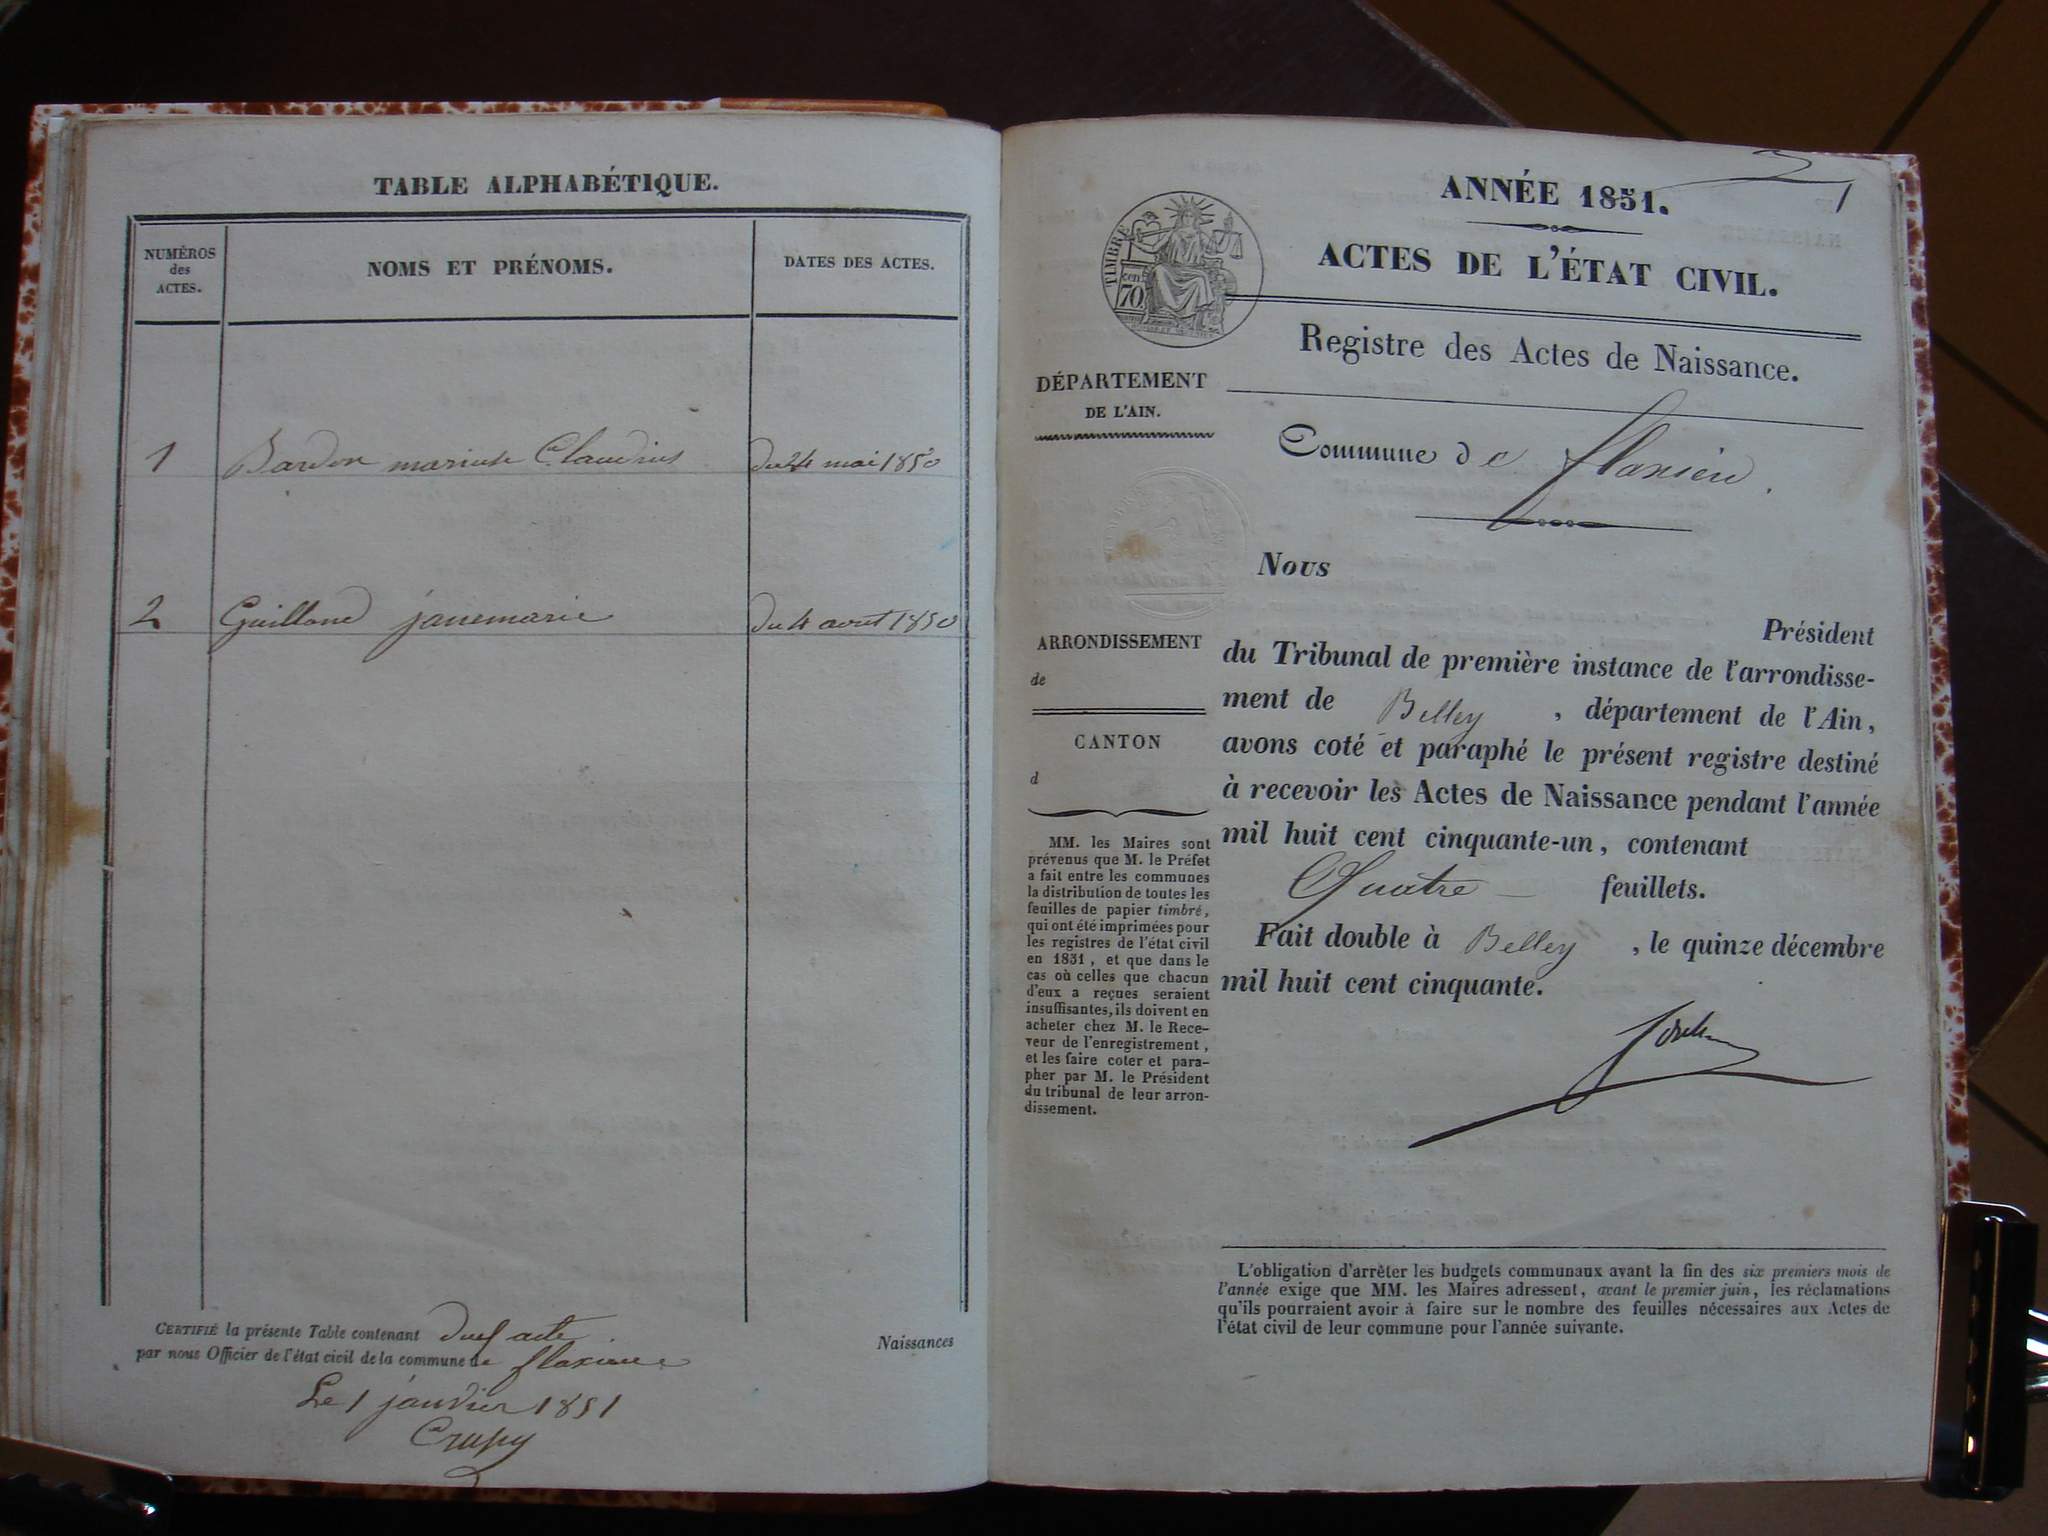 TABLE ALPHABÉTIQUE.
NUMÉROS
des
ACTES.
NOMS ET PRÉNOMS.
DATES DES ACTES.
1 Bardon Claudius du 24 mai 1850
2 janemarie du 4 aout 1850
CERTIFIÉ la présente Table contenant acte Naissances
par nous Officier de l'état civil de la commune de
Le 1 janvier 1851
Crupy
1
ANNÉE 1851.
ACTES DE L'ÉTAT CIVIL.
TIMBRE
cen
70
Registre des Actes de Naissance.
DÉPARTEMENT
DE L'AIN.
Commune de flaxieu.
ARRONDISSEMENT
de
CANTON
d
MM. les Maires sont
prévenus que M. le Préfet
a fait entre les communes
la distribution de toutes les
feuilles de papier timbré,
qui ont été imprimées pour
les registres de l'état civil
en 1851, et que dans le
cas où celles que chacun
d'eux a reçues seraient
insuffisantes, ils doivent en
acheter chez M. le Rece-
veur de l'enregistrement,
et les faire coter et para-
pher par M. le Président
du tribunal de leur arron-
dissement.
Nous
Président
du Tribunal de première instance de l'arrondisse-
ment de Belley, département de l'Ain,
avons coté et paraphé le présent registre destiné
à recevoir les Actes de Naissance pendant l'année
mil huit cent cinquante-un, contenant
Quatre feuillets.
Fait double à Belley, le quinze décembre
mil huit cent cinquante.
L'obligation d'arrêter les budgets communaux avant la fin des six premiers mois de
l'année exige que MM. les Maires adressent, avant le premier juin, les réclamations
qu'ils pourraient avoir à faire sur le nombre des feuilles nécessaires aux Actes de
l'état civil de leur commune pour l'année suivante.